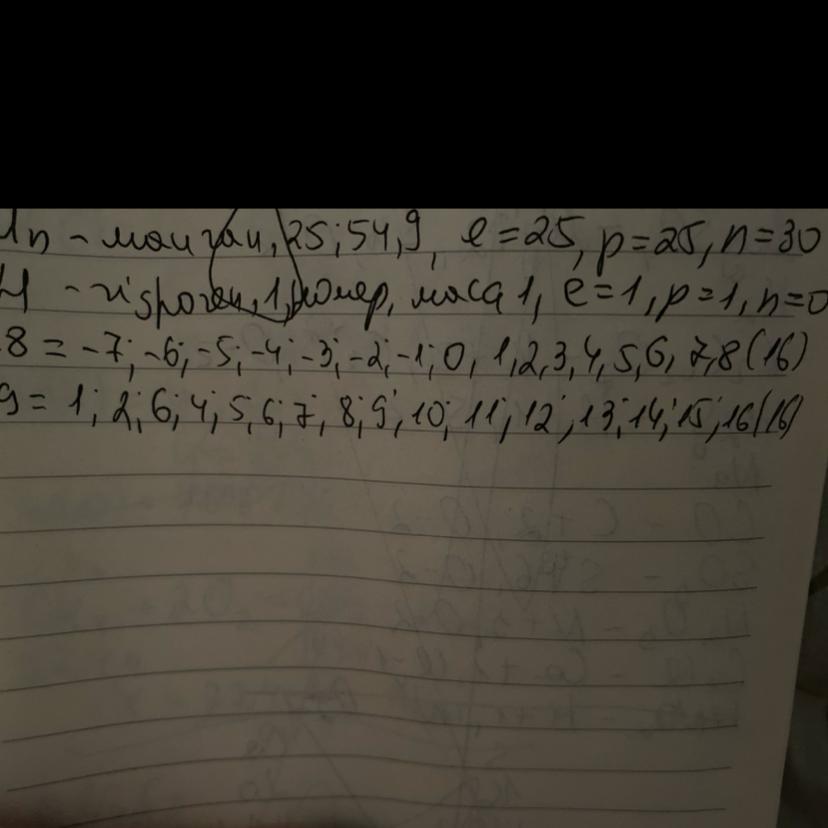 Mn - манган, 25; 54,9, e = 25, p = 25, n = 30
H - гідроген, 1, номер, маса 1, e = 1, p = 1, n = 0
8 = -7; -6; -5; -4; -3; -2; -1; 0, 1, 2, 3, 4, 5, 6, 7, 8 (16)
9 = 1; 2; 6; 4; 5; 6; 7; 8; 9; 10; 11; 12; 13; 14; 15; 16 (16)